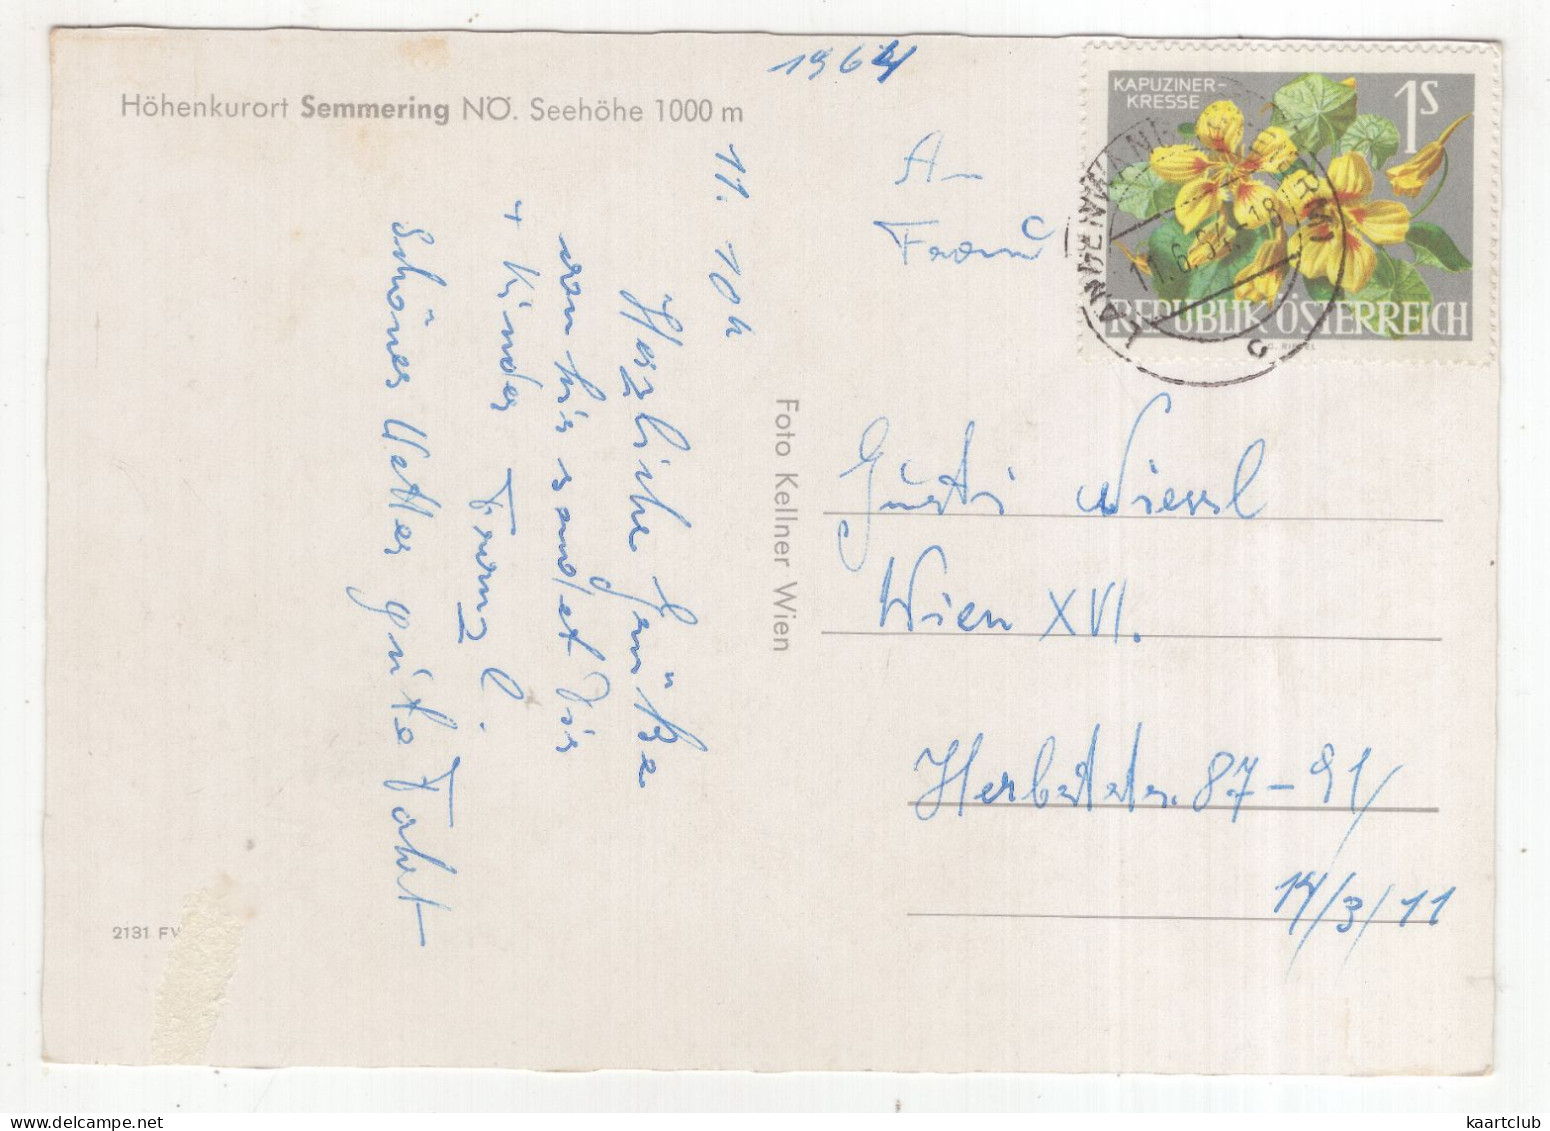 1964
Höhenkurort Semmering NÖ. Seehöhe 1000 m
KAPUZINER-
KRESSE
1S
REPUBLIK ÖSTERREICH
11. 10h
Herzliche Grüße
von hier sendet Dir
+ Kinder Franz
Schönes Wetter gute Fahrt
Foto Kellner Wien
An
Frau
Gusti
Wien XVI.
Herbststr. 87-91/
14/3/11
2131 FW
kaartclub